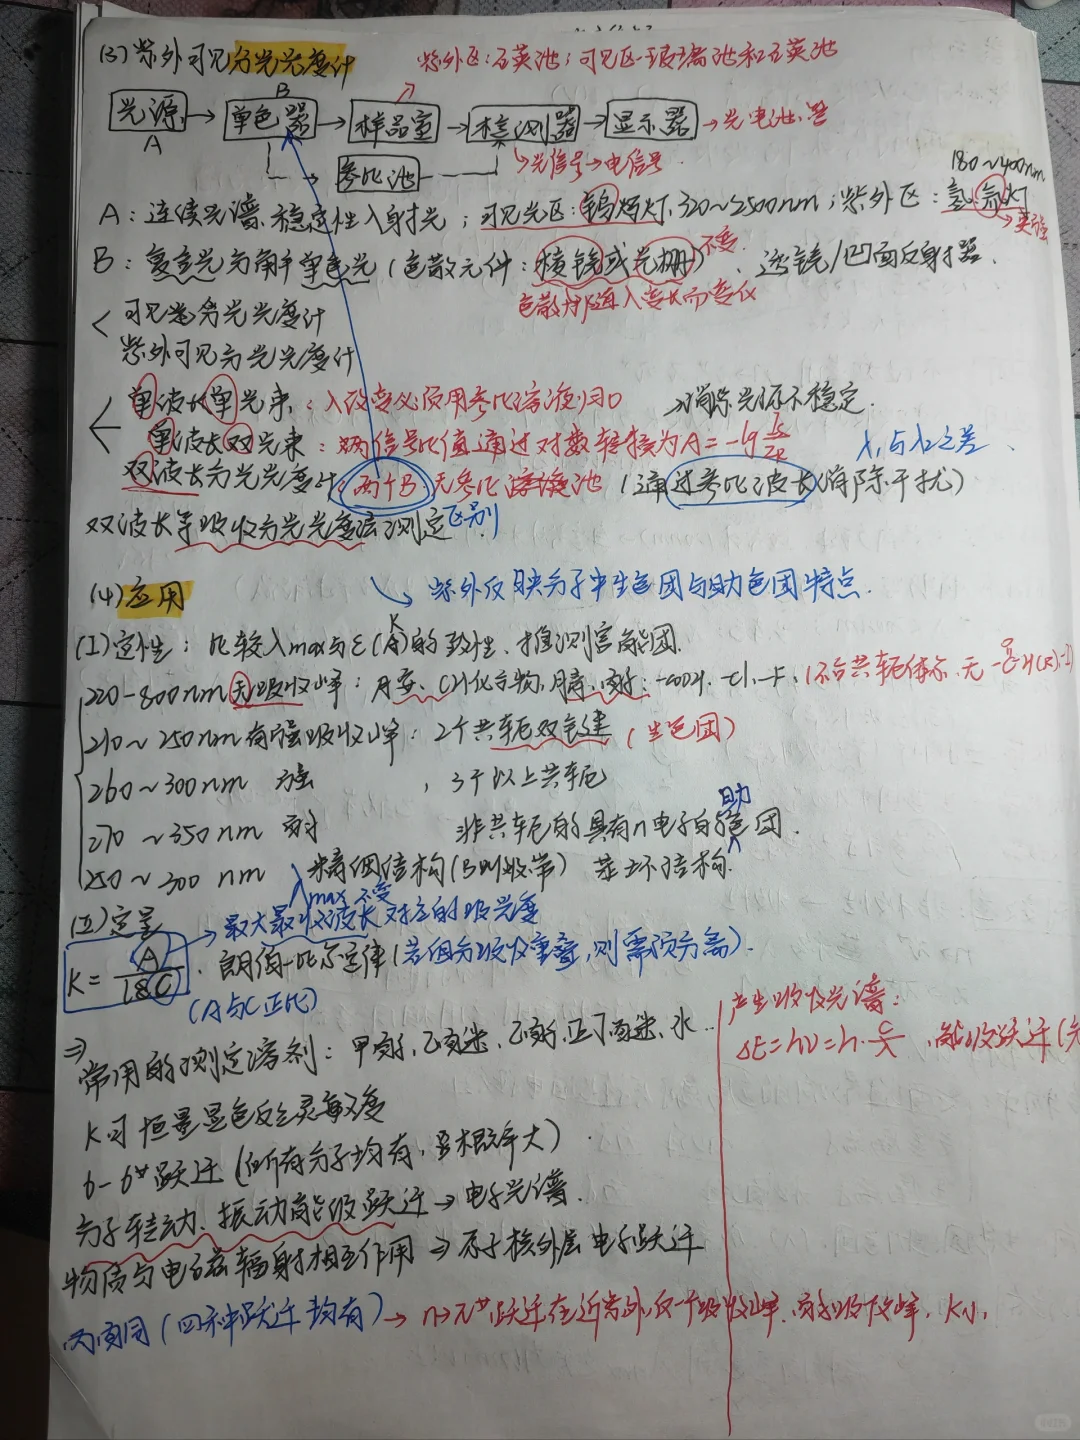 (3)紫外可见分光光度计
紫外区:石英池;可见区-玻璃池和石英池
B
光源 → 单色器 → 样品室 → 检测器 → 显示器 → 光电池、管
A
参比池
↳光信号→电信号
180~400nm
A:连续光谱、稳定性入射光;可见光区:钨灯,320~2500nm;紫外区:氢、氘灯
B:复色光分解单色光(色散元件:棱镜或光栅)、透镜/凹面反射器、
不变
色散力随入变长而变
< 可见分光光度计
紫外可见分光光度计
< 单波长单光束:入改变必须用参比溶液归0
→消除光源不稳定.
单波长双光束:两信号比值通过对数转换为A=-lg
λ₁与λ₂之差
双波长分光光度计:两个B,无参比溶液池(通过参比波长消除干扰)
双波长等吸收分光光度法测定 区别
(4)应用
↘紫外反映分子中生色团与助色团特点.
K
(I)定性:比较入max与ε(A)的一致性、推测官能团.
220-800nm无吸收峰:胺、-COOH、-Cl、-F、(不含共轭体系、无
210~250nm有强吸收峰:2个共轭双键(生色团)
260~300nm 强 ,3个以上共轭
270~350nm 弱 非共轭的具有n电子的 助 色团.
250~300nm 精细结构(B吸收带)苯环结构.
(II)定量
λmax不变
→最大吸收波长对应的吸光度
K= A . 朗伯-比尔定律(若组分吸收重叠,则需预分离).
(A与C正比)
⇒常用的测定溶剂:甲醇、乙醚、乙醇、正丁醚、水..
K可衡量显色反应灵敏度
σ-σ*跃迁(所有分子均有,且概率大)
分子转动、振动能级跃迁→电子光谱.
物质与电磁辐射相互作用⇒原子核外层电子跃迁
丙酮(四种跃迁均有)→n→π*跃迁在近紫外,仅一个吸收峰、弱吸收峰,K小,
产生吸收光谱:
ΔE=hν=h·c/λ、能级跃迁